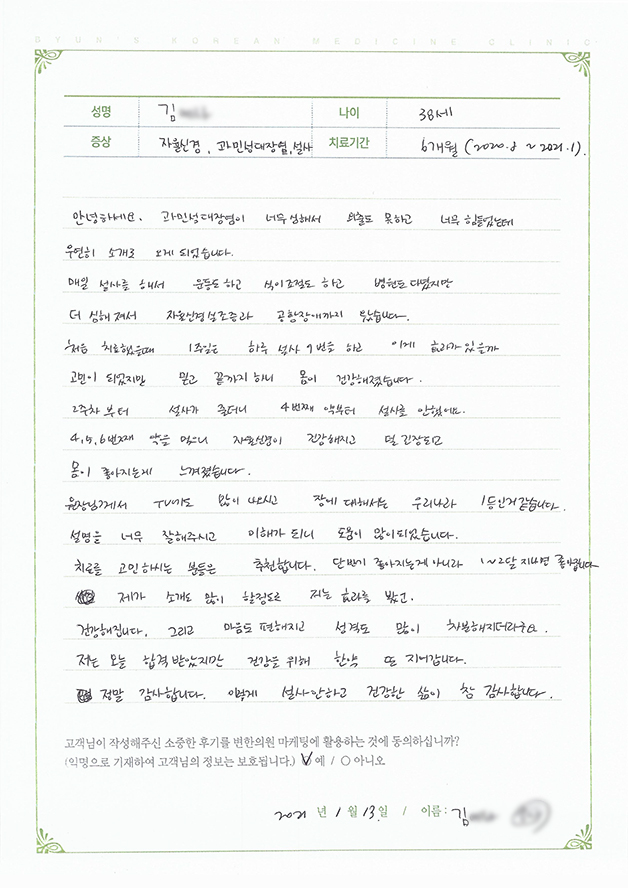 BYUN'S KOREAN MEDICINE CLINIC
성명 김 나이 38세
증상 자율신경, 과민성대장염, 설사 치료기간 6개월 (2020.8 ~ 2021.1).
안녕하세요. 과민성대장염이 너무심해서 외출도 못하고 너무 힘들었는데
우연히 소개로 오게 되었습니다.
매일 설사를 해서 운동도하고 식이조절도 하고 병원도 다녔지만
더 심해져서 자율신경실조증과 공황장애까지 왔습니다.
처음 치료했을때 1주일은 하루 설사 9번을 하고 이게 효과가 있을까
고민이 되었지만 믿고 끝까지 하니 몸이 건강해졌습니다.
2주차부터 설사가 줄더니 4번째 약부터 설사를 안했어요.
4,5,6번째 약을 먹으니 자율신경이 건강해지고 덜 긴장되고
몸이 좋아지는게 느껴졌습니다.
원장님께서 TV에도 많이 나오시고 장에 대해서는 우리나라 1등인거같습니다.
설명을 너무 잘해주시고 이해가 되니 도움이 많이되었습니다.
치료를 고민하시는 분들은 추천합니다. 단번기 좋아지는게 아니라 1~2달 지나면 좋아집니다
제가 소개도 많이 할정도로 저는 효과를 봤고.
건강해집니다. 그리고 마음도 편해지고 성격도 많이 차분해지더라구요.
저는 오늘 합격받았지만 건강을 위해 한약 또 지어갑니다.
정말 감사합니다. 이렇게 설사안하고 건강한 삶이 참 감사합니다.
고객님이 작성해주신 소중한 후기를 변한의원 마케팅에 활용하는 것에 동의하십니까?
(익명으로 기재하여 고객님의 정보는 보호됩니다.) ○ 예 / ○ 아니오
2021 년 1 월 13 일 / 이름 : 김